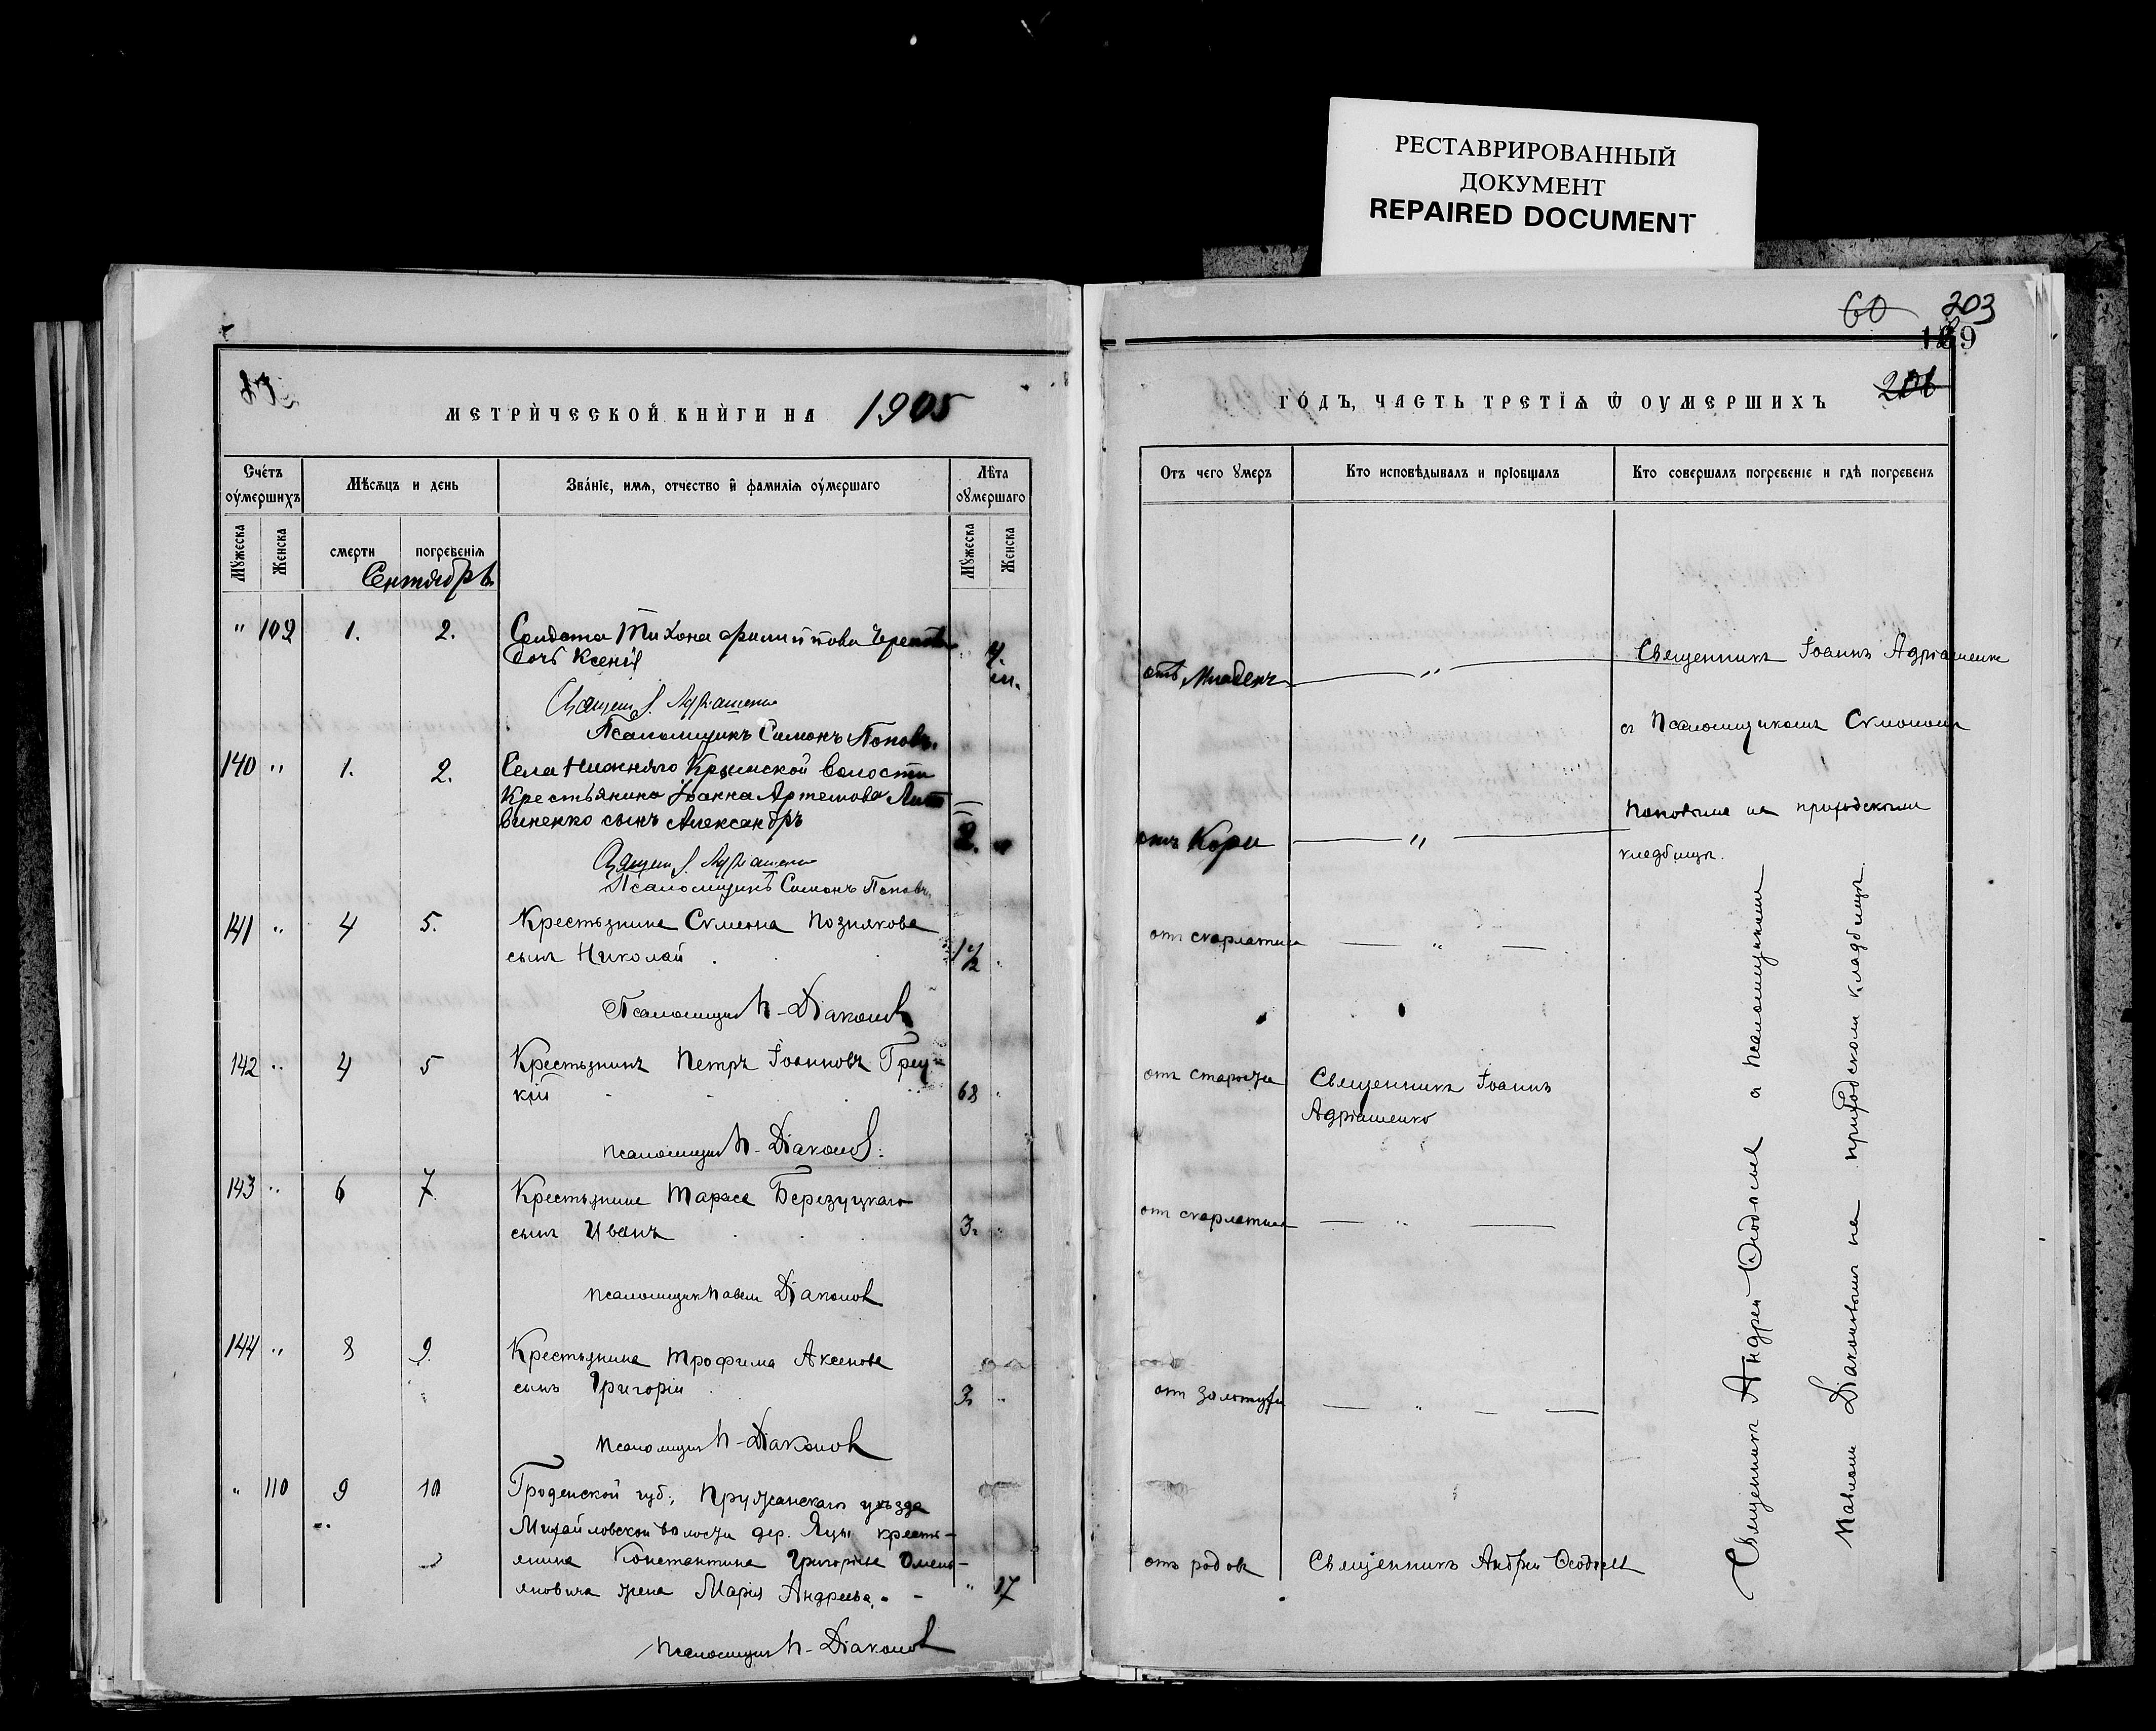 РЕСТАВРИРОВАННЫЙ
ДОКУМЕНТ
REPAIRED DOCUMENT
МЕТРИЧЕСКОЙ КНИГИ НА 1905
Счетъ оумершихъ
Мѣсѧцъ и день
Званіе, имѧ, отчество и фамиліѧ оумершаго
Лѣта оумершаго
Мужеска
Женска
смерти
погребеніѧ
Мужеска
Женска
Сентябрь
" 109 1. 2. Солдата Тихона Филиппова
дочь Ксенія 4. м.
Псаломщикъ Симонъ Поповъ.
140 " 1. 2. Села Нижняго Крынской волости
Крестьянина Іоанна Артемова Лит
виненко сынъ Александръ 2.
Псаломщикъ Симонъ Поповъ.
141 " 4 5. Крестьянина Симеона Познякова
сынъ Николай 1 1/2
Псаломщикъ П. Діаконовъ
142 " 4 5 Крестьянинъ Петръ Іоанновъ Грец-
кій 68
Псаломщикъ П. Діаконовъ.
143 " 6 7. Крестьянина Тараса Березуцкаго
сынъ Иванъ 3
Псаломщикъ Павелъ Діаконовъ
144 " 8 9. Крестьянина Трофима Аксенова
сынъ Григорій 3
Псаломщикъ П. Діаконовъ
" 110 9 10 Гроденской губ., Пружанскаго уѣзда
Михайловской волости дер. Яцы кресть-
янина Константина Григорьева Омель-
яновича жена Марія Андреева. " 17
Псаломщикъ П. Діаконовъ
60 203
189
206
ГОДЪ, ЧАСТЬ ТРЕТІѦ Ѿ ОУМЕРШИХЪ
Отъ чего умеръ
Кто исповѣдывалъ и пріобщалъ
Кто совершалъ погребеніе и гдѣ погребенъ
отъ младенч "
Священникъ Іоаннъ Адріашенко
съ Псаломщикомъ Симономъ
Поповымъ на приходскомъ
кладбищѣ.
отъ кори "
от скарлатины "
отъ старости Священникъ Іоаннъ
Адріашенко
от скарлатины "
от золотухи "
отъ родовъ Священникъ Андрей Ѳеодосьевъ
Священникъ Андрей Ѳеодосьевъ съ псаломщикомъ
Павломъ Діаконовымъ на приходскомъ кладбищѣ